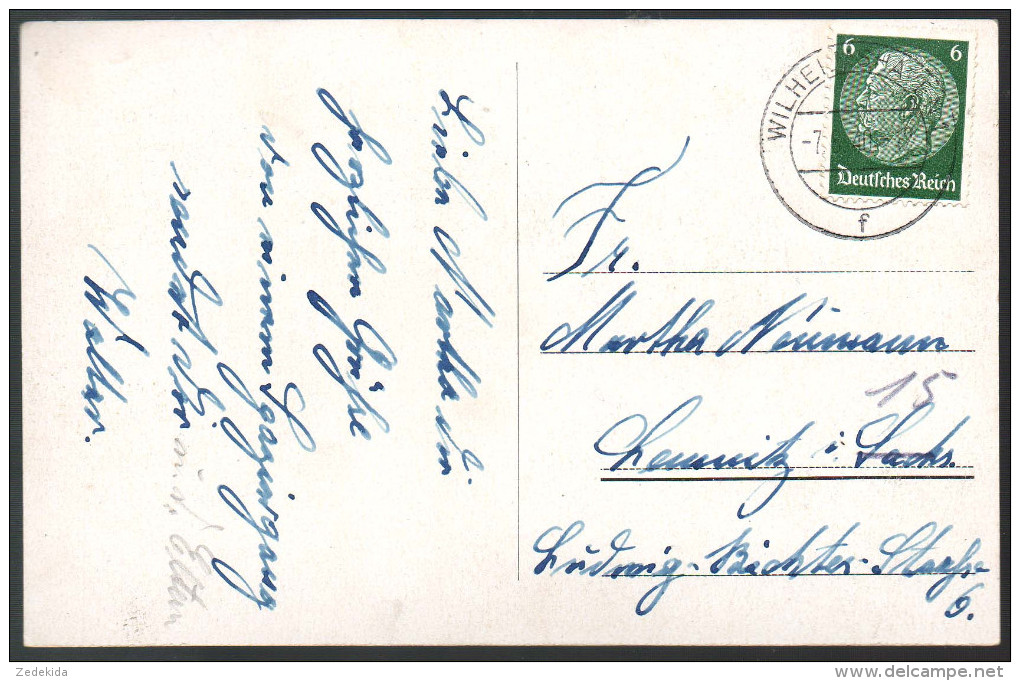 Liebe Martha u.
herzlichen Grüße
von einem Spaziergang
sendet Dir u. d. Eltern
Walter.
6 6
Deutsches Reich
WILHELMSHA
-7.
f
Fr.
Martha Neumann
15
Chemnitz i. Sachs.
Ludwig-Richter-Straße
6.
Zedekida
delcampe.net